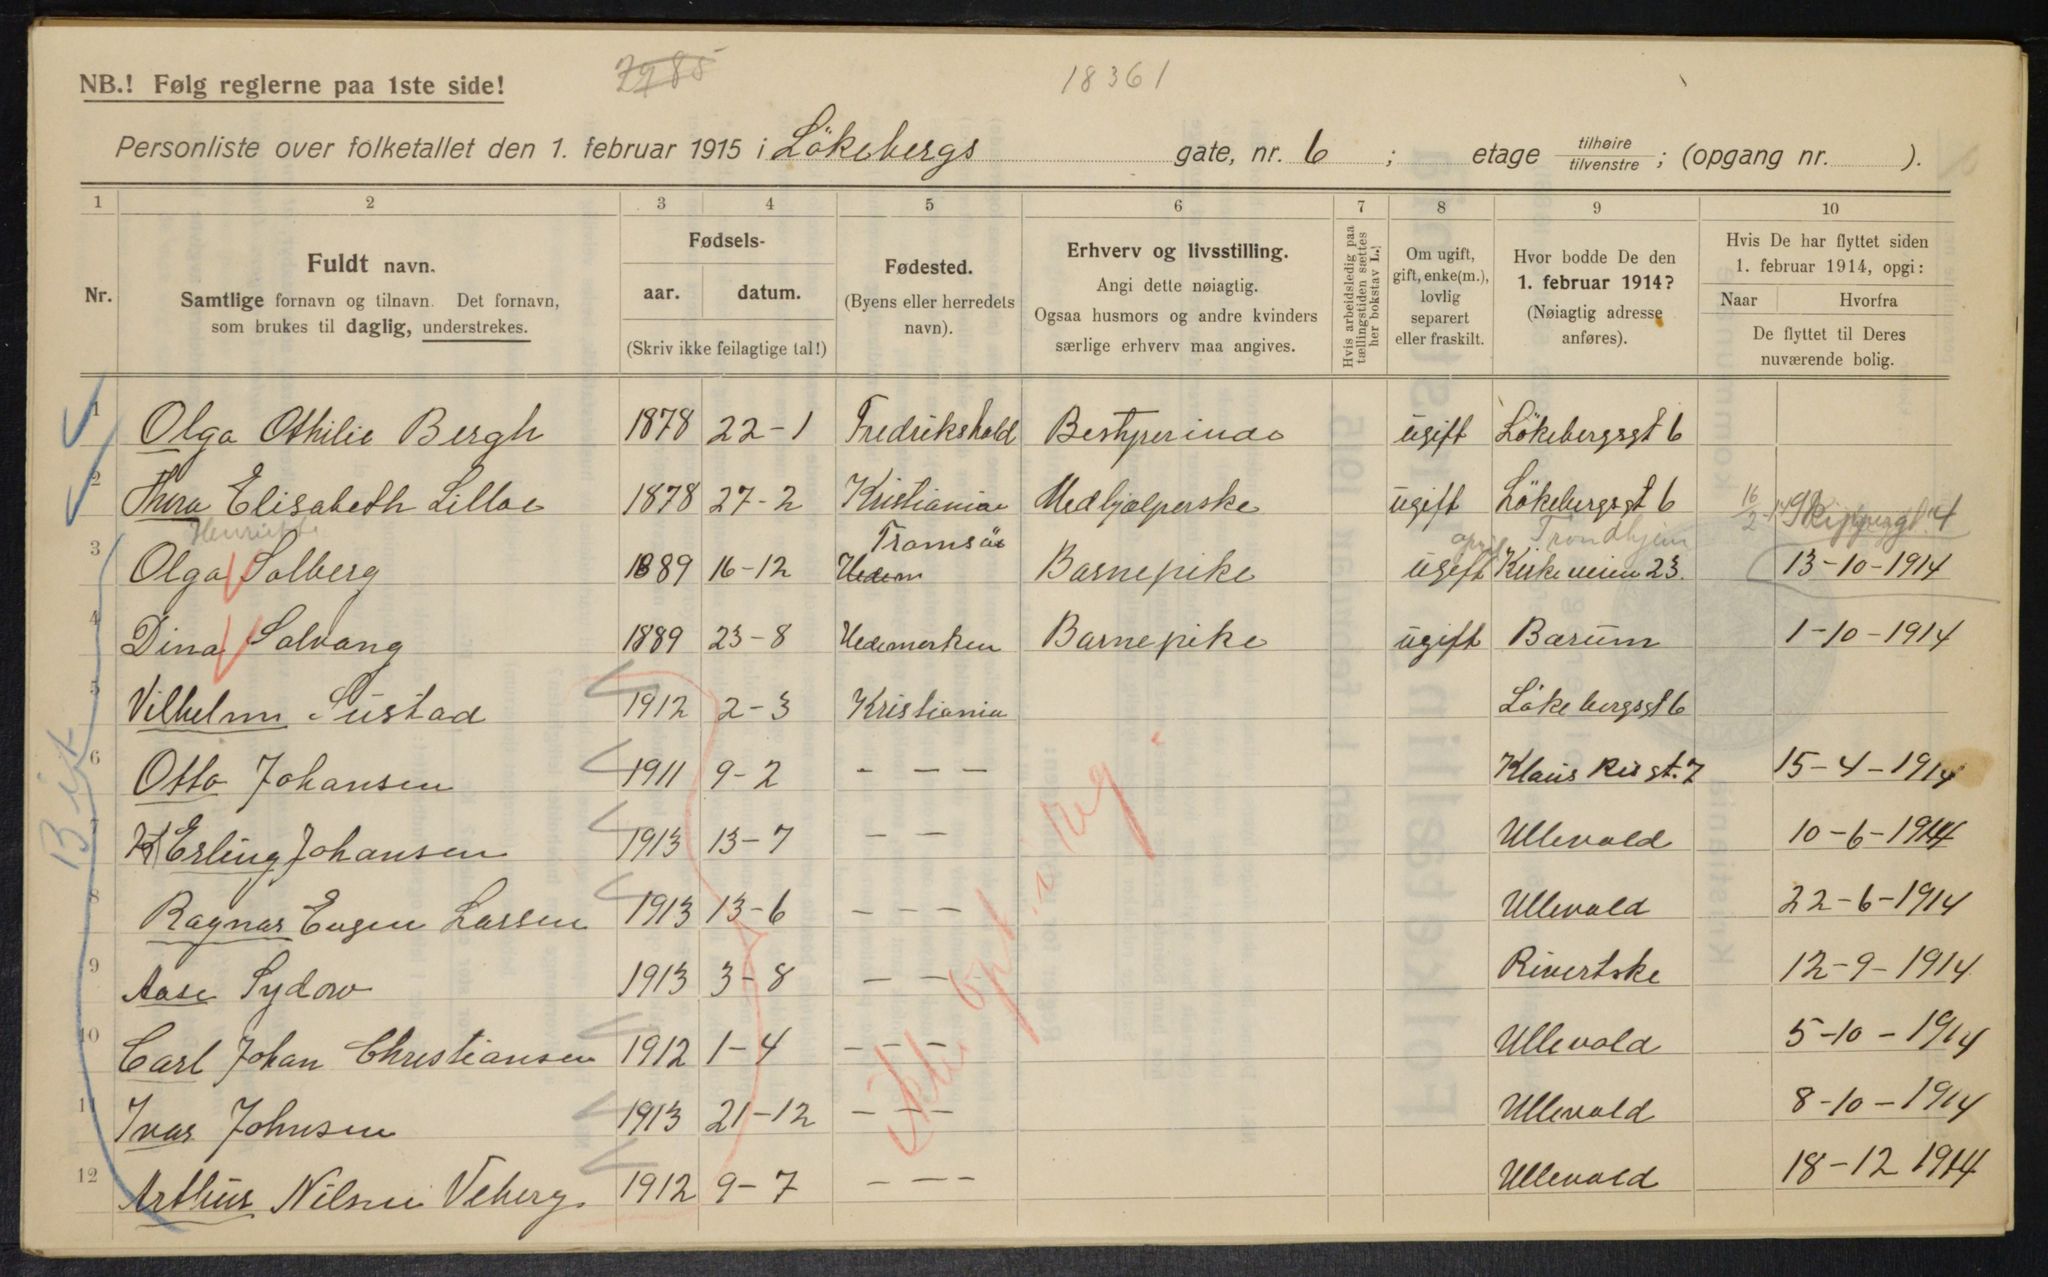 7985 18361
NB.! Følg reglerne paa 1ste side!
Personliste over folketallet den 1. februar 1915 i Lökebergs gate, nr. 6 ; etage tilhøire tilvenstre ; (opgang nr. ).
1 2 3 4 5 6 7 8 9 10
Nr.
Fuldt navn.
Samtlige fornavn og tilnavn. Det fornavn,
som brukes til daglig, understrekes.
Fødsels-
aar. datum.
(Skriv ikke feilagtige tal!)
Fødested.
(Byens eller herredets
navn).
Erhverv og livsstilling.
Angi dette nøiagtig.
Ogsaa husmors og andre kvinders
særlige erhverv maa angives.
Hvis arbeidsledig paa
tællingstiden sættes
her bokstav L.
Om ugift,
gift, enke(m.),
lovlig
separert
eller fraskilt.
Hvor bodde De den
1. februar 1914?
(Nøiagtig adresse
anføres).
Hvis De har flyttet siden
1. februar 1914, opgi:
Naar Hvorfra
De flyttet til Deres
nuværende bolig.
1 Olga Othilie Bergh 1878 22-1 Fredrikshald Bestyrerinde ugift Lökebergsgt 6
2 Thora Elisabeth Lilloe 1878 27-2 Kristiania Medhjælperske ugift Lökebergsgt 6
Henriette Tromsö Trondhjem 16/2-14
3 Olga Solberg 1889 16-12 Hedem Barnepike ugift Kirkeveien 23. 13-10-1914
4 Dina Solvang 1889 23-8 Hedemarken Barnepike ugift Bærum 1-10-1914
5 Vilhelm Sustad 1912 2-3 Kristiania Lökebergsgt 6
6 Otto Johansen 1911 9-2 - - - Klaus Risgt. 7 15-4-1914
7 Erling Johansen 1913 13-7 - - Ullevold 10-6-1914
8 Ragnar Eugen Larsen 1913 13-6 - - - Ullevold 22-6-1914
9 Aase Sydow 1913 3-8 - - Rivertske 12-9-1914
10 Carl Johan Christiansen 1912 1-4 - - - Ullevold 5-10-1914
11 Ivar Johnsen 1913 21-12 - - - Ullevold 8-10-1914
12 Arthur Nilsen Veberg 1912 9-7 - - - Ullevold 18-12 1914